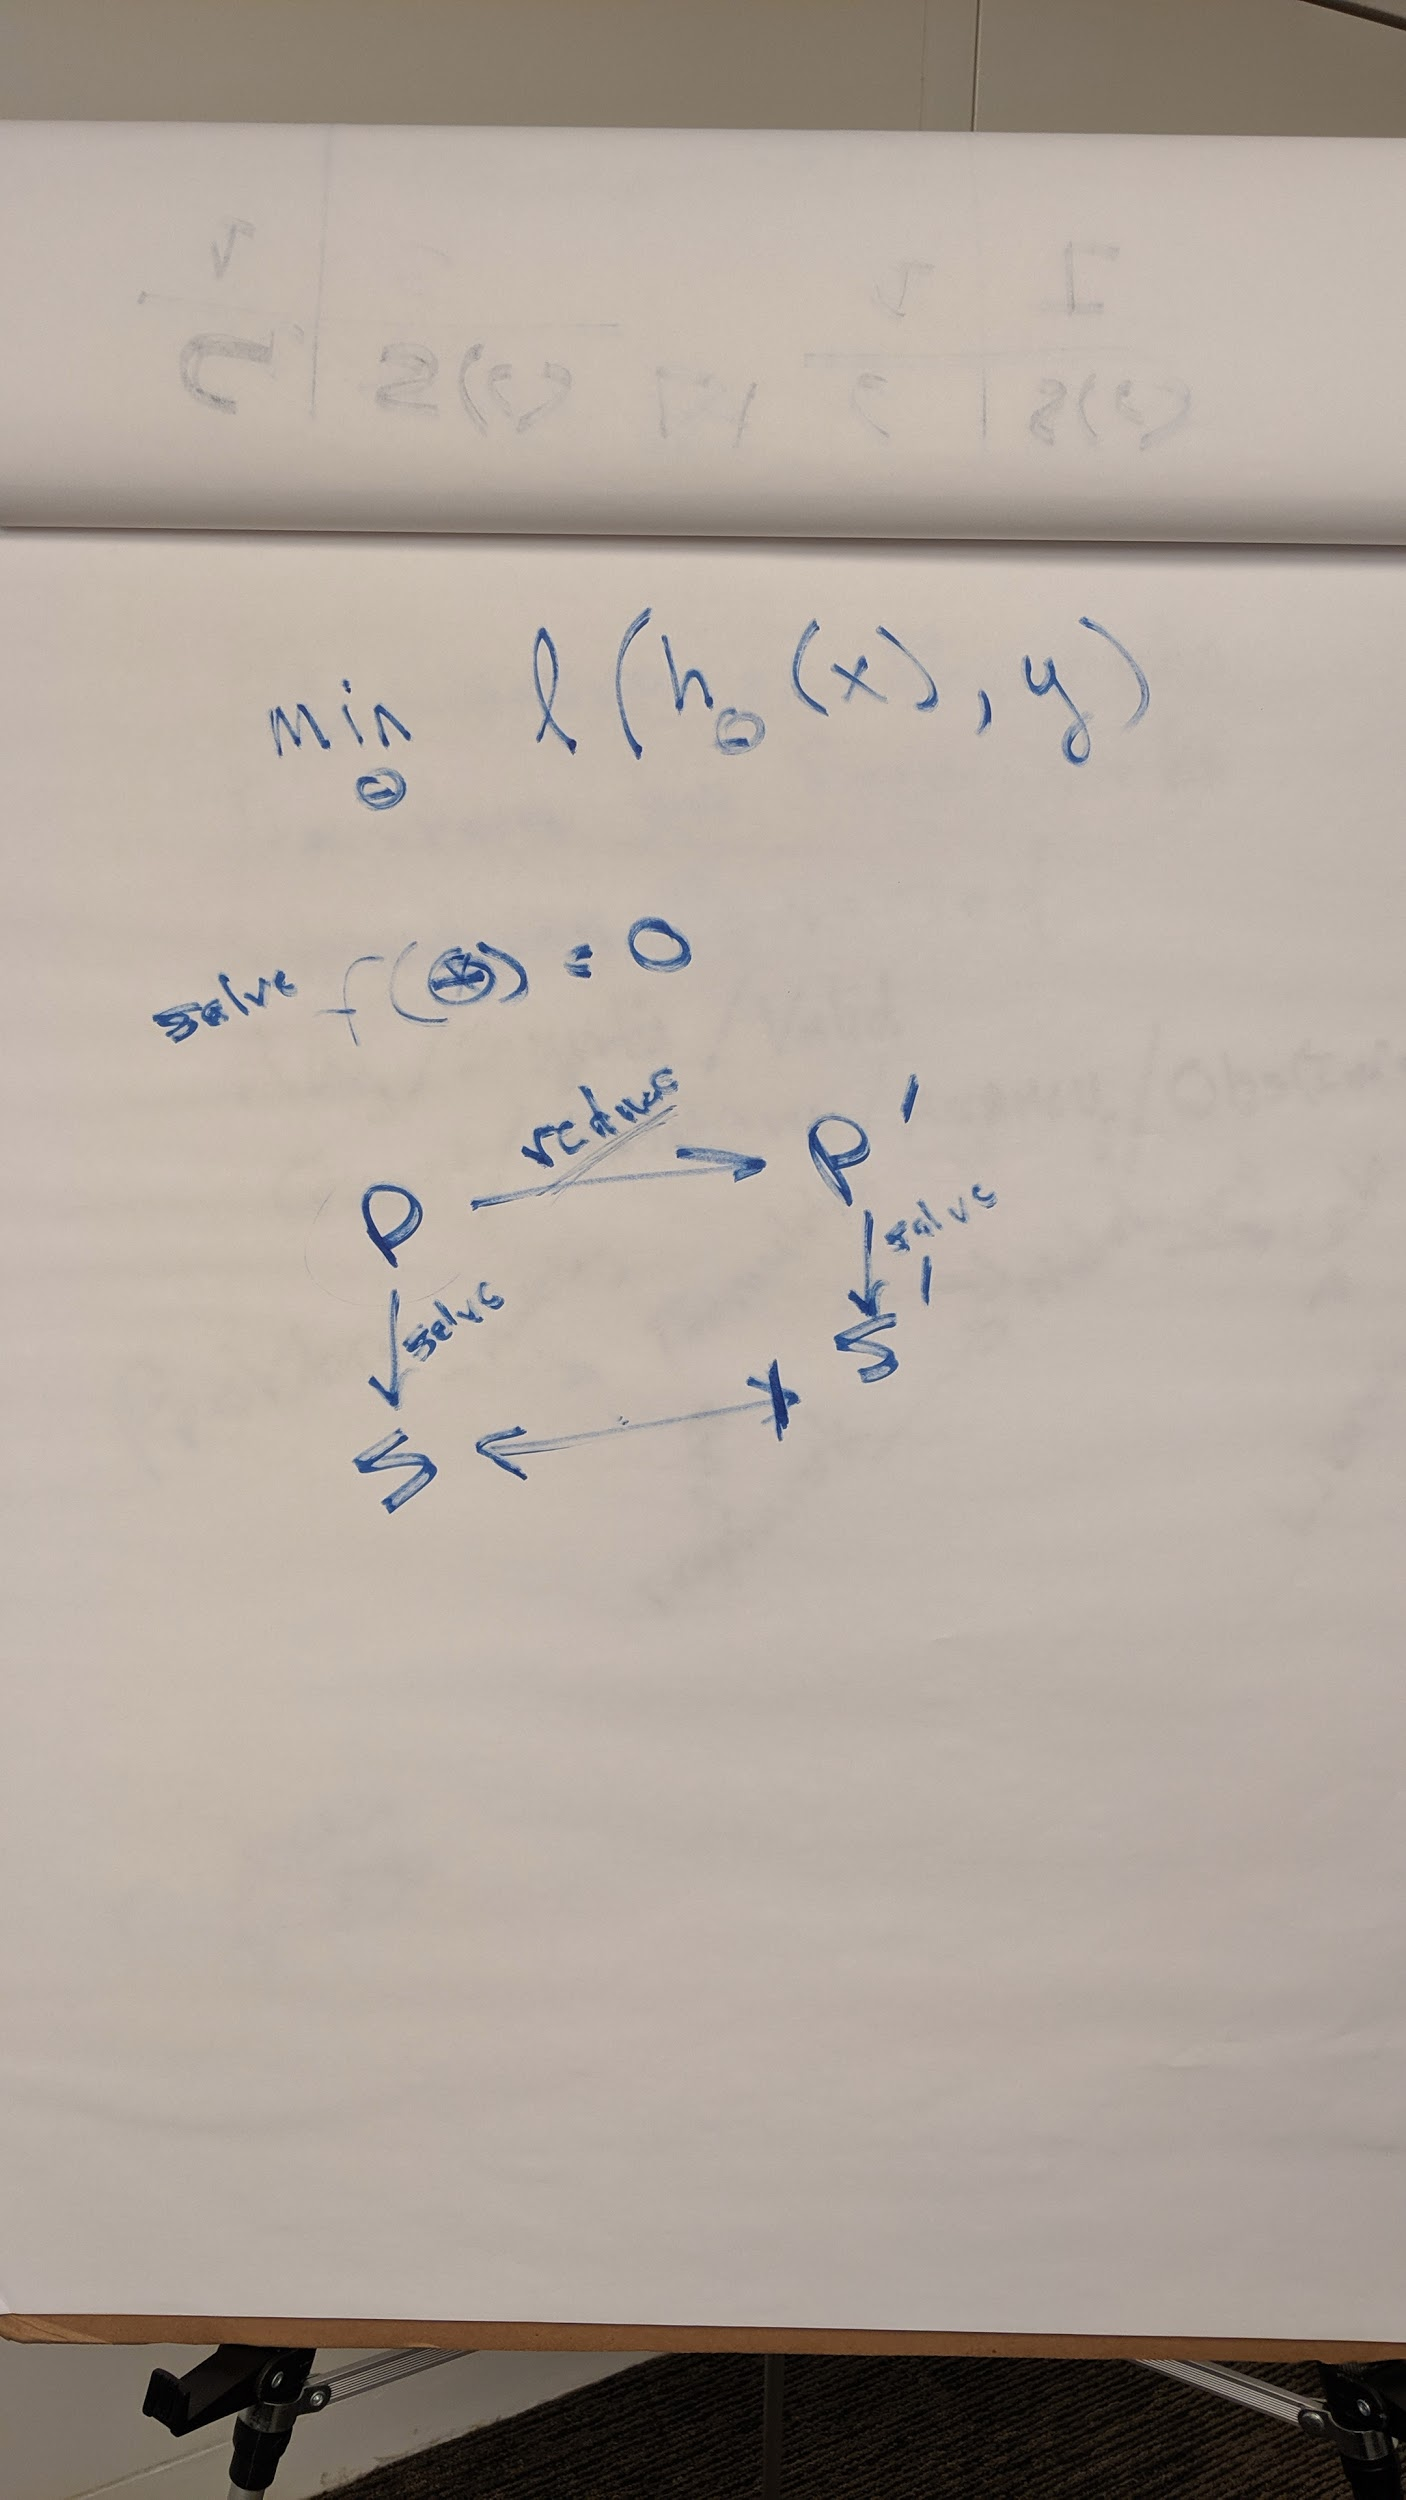 min l(h_θ(x), y)
θ
solve f(x) = 0
reduce
P → P'
solve
solve
S'
S ↔